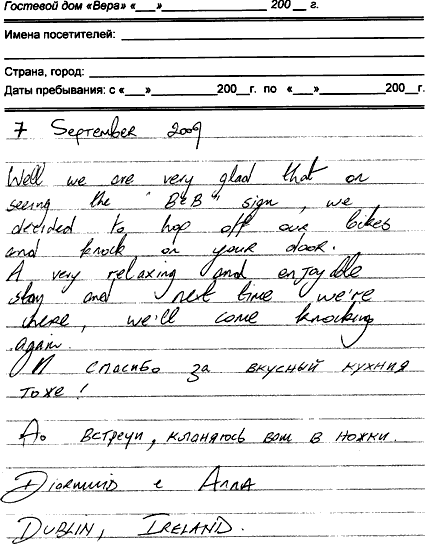 Гостевой дом «Вера» «___»____________ 200__ г.
Имена посетителей:
Страна, город:
Даты пребывания: с «___»__________200__г. по «___»__________200__г.
7 September 2009
Well we are very glad that on
seeing the "B&B" sign, we
decided to hop off our bikes
and knock on your door.
A very relaxing and enjoyable
stay and next time we're
here, we'll come knocking
again.
И спасибо за вкусный кухния
тоже!
До встречи, кланяюсь вам в ножки.
Diarmuid e Anna
Dublin, Ireland.